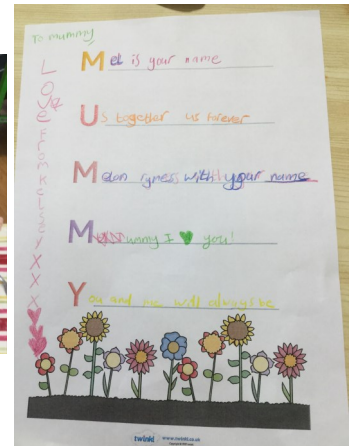 To mummy
Love From Kelsey X X X
Mel is your name
Us together us forever
Melon rymess with your name
Mummy I you!
You and me will always be
twinkl www.twinkl.co.uk